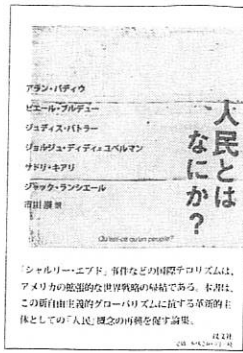 人民とは
なにか?
アラン・バディウ
ピエール・ブルデュー
ジュディス・バトラー
ジョルジュ・ディディ=ユベルマン
サドリ・キアリ
ジャック・ランシエール
市川崇 訳
Qu'est-ce qu'un peuple?
「シャルリー・エブド」事件などの国際テロリズムは、
アメリカの拡張的な世界戦略の帰結である。本書は、
この新自由主義的グローバリズムに抗する革新的主
体としての「人民」概念の再興を促す論集。
以文社